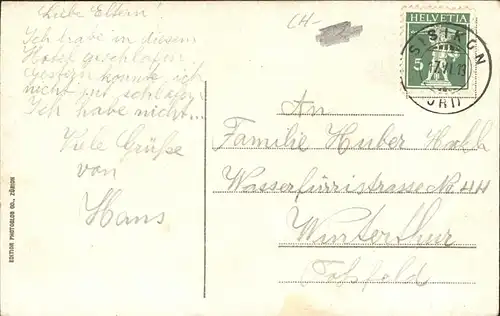 Liebe Eltern!
Ich habe in diesem
Hotel geschlafen.
Gestern konnte ich
nicht gut schlafen
Ich habe nicht...
Viele Grüße
von
Hans
CH-
HELVETIA
5
SISIKON
17.VI.13
(URI)
An
Familie Huber
Wasserfurristrasse No 44
Winterthur
Tössfeld
EDITION PHOTOGLOB CO., ZÜRICH